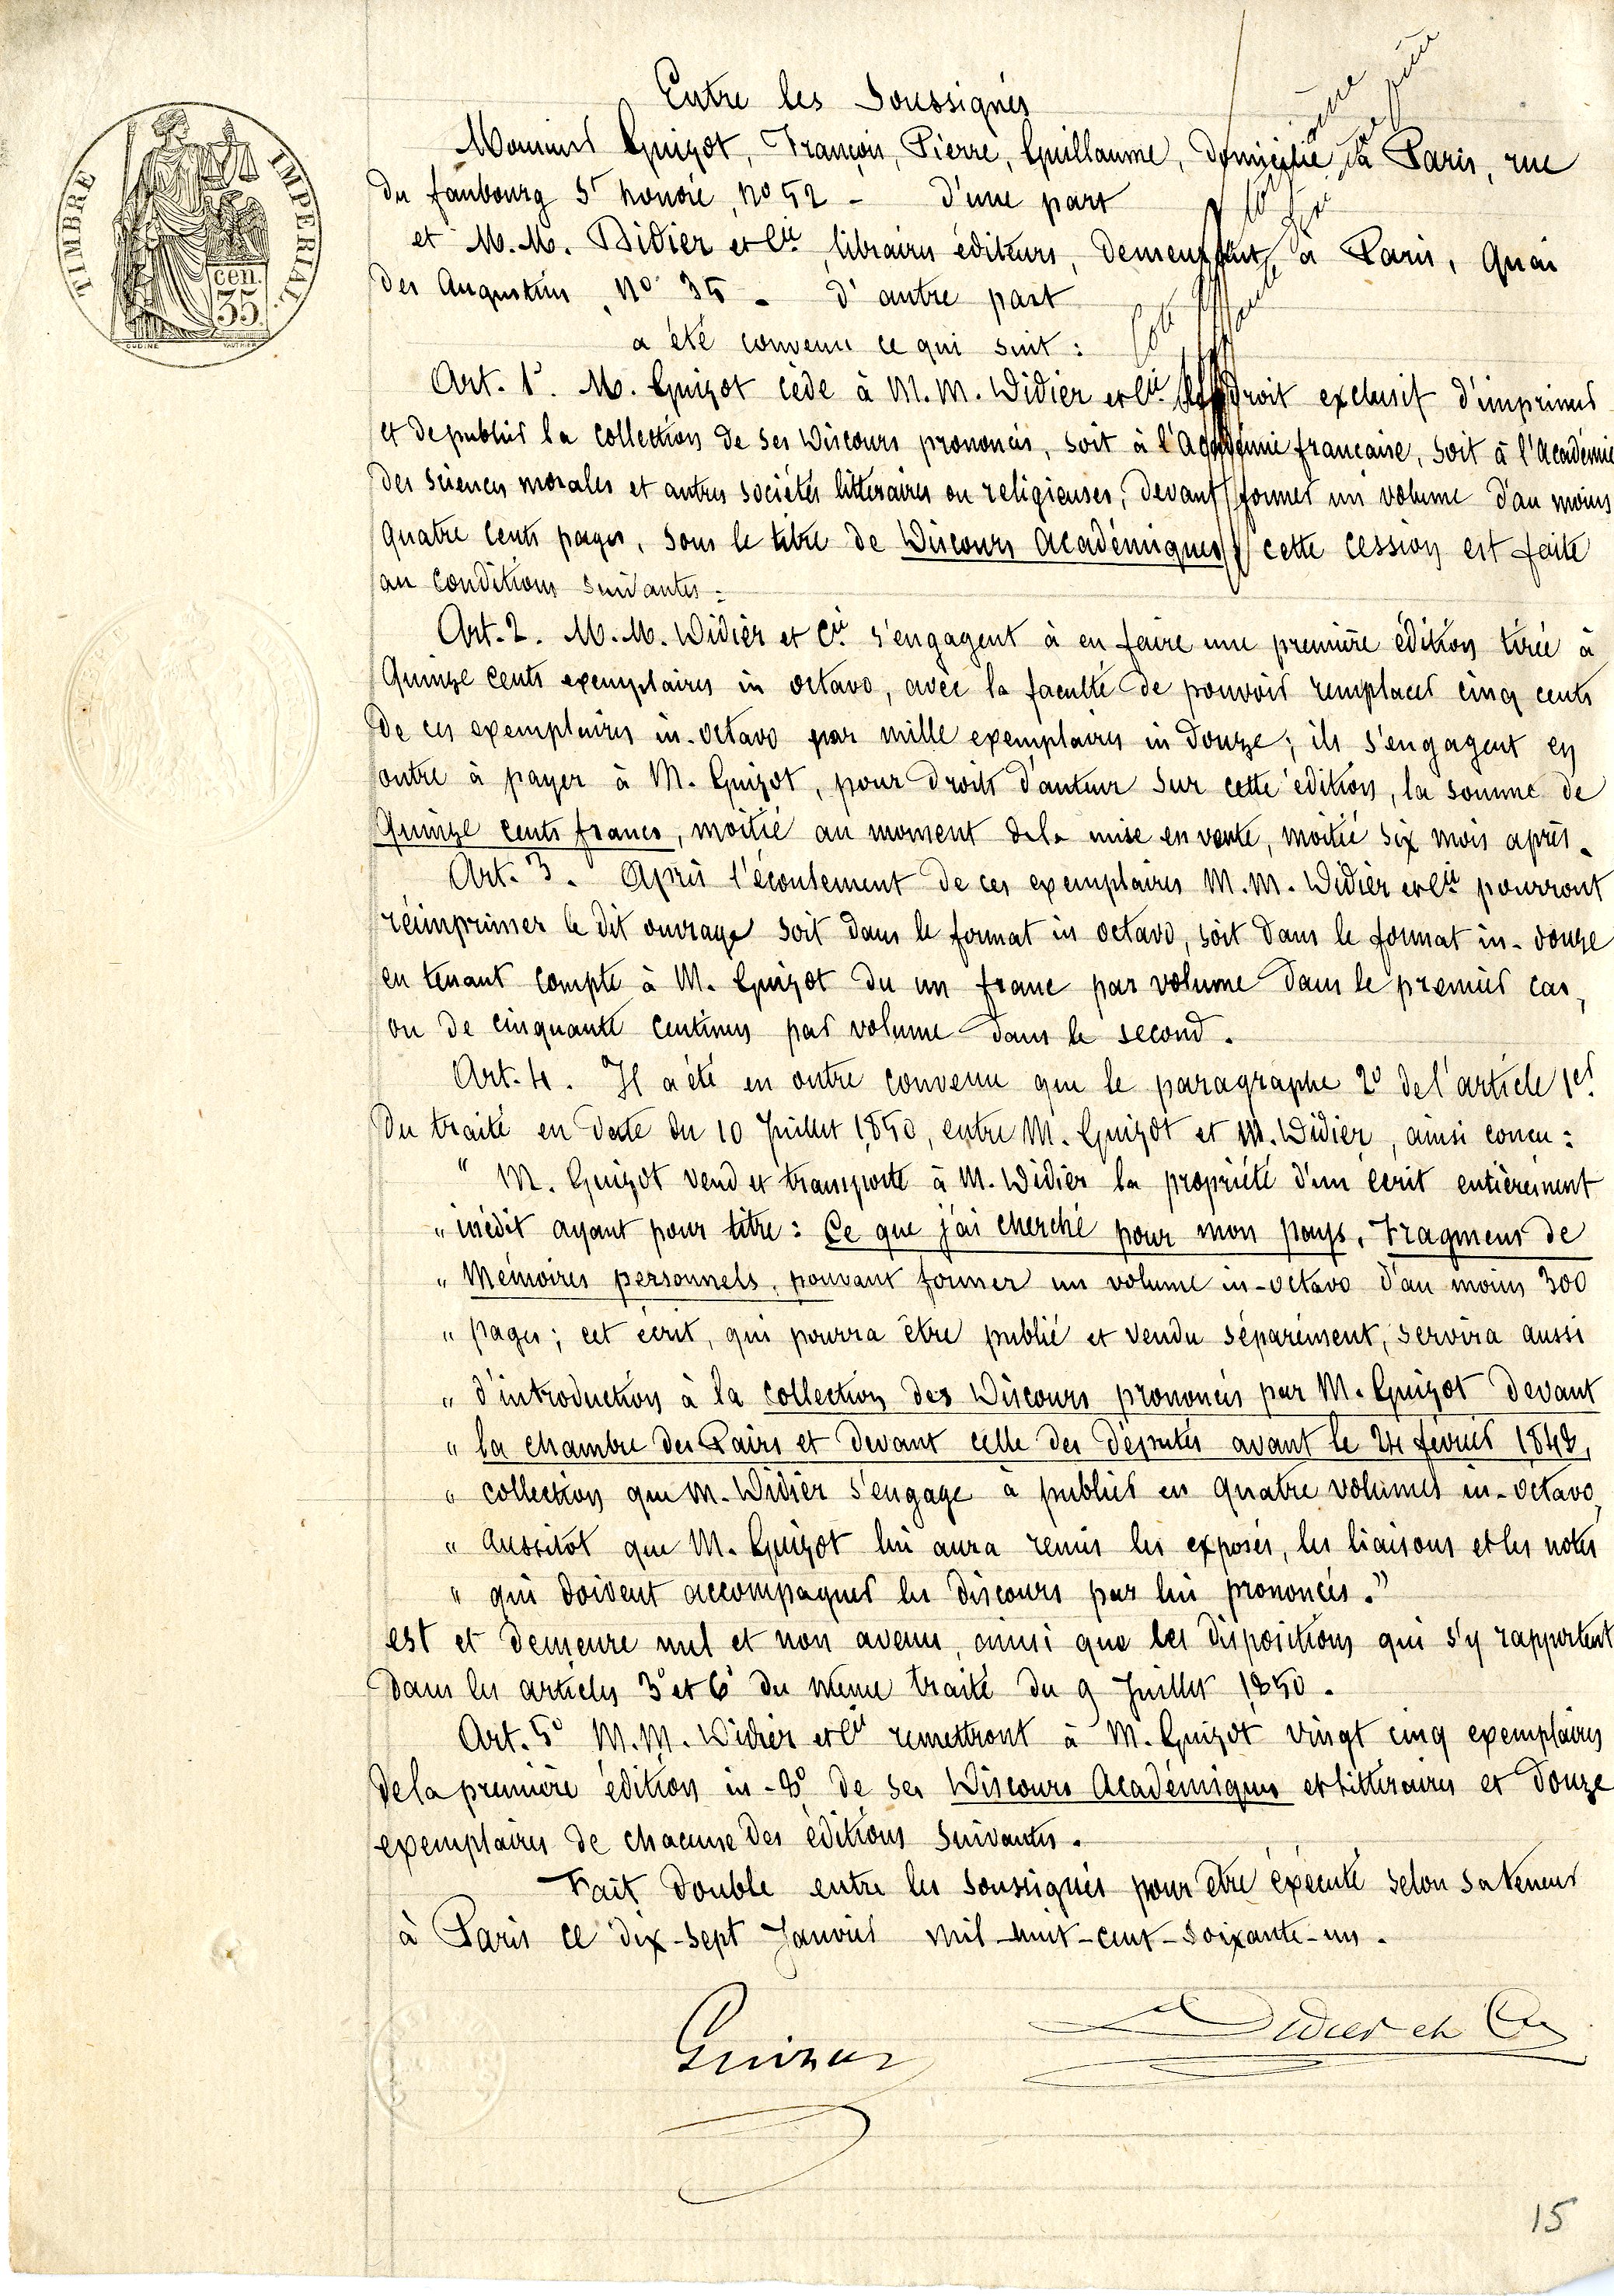 TIMBRE IMPERIAL
cen.
35.
OUDINÉ
Entre les Soussignés
Monsieur Guizot, François, Pierre, Guillaume, domicilié à Paris, rue
du faubourg St honoré, no 52 - d'une part
et M.M. Didier et Cie, libraires éditeurs, demeurant à Paris, Quai
des Augustins, No 35 - d'autre part
a été convenu ce qui suit :
Art. 1o. M. Guizot cède à M.M. Didier et Cie le droit exclusif d'imprimer
et de publier la collection de ses Discours prononcés, soit à l'Académie française, soit à l'Académie
des sciences morales et autres sociétés littéraires ou religieuses, devant former un volume d'au moins
quatre cents pages, sous le titre de Discours Académiques, cette cession est faite
au conditions suivantes :
Art. 2. M.M. Didier et Cie s'engagent à en faire une première édition tirée à
Quinze cents exemplaires in octavo, avec la faculté de pouvoir remplacer cinq cents
de ces exemplaires in-octavo par mille exemplaires in douze ; ils s'engagent en
outre à payer à M. Guizot, pour droits d'auteur sur cette édition, la somme de
Quinze cents francs, moitié au moment de la mise en vente, moitié six mois après.
Art. 3. Après l'écoulement de ces exemplaires M.M. Didier et Cie pourront
réimprimer le dit ouvrage soit dans le format in octavo, soit dans le format in-douze
en tenant compte à M. Guizot du un franc par volume dans le premier cas,
ou de cinquante centimes par volume dans le second.
Art. 4. Il a été en outre convenu que le paragraphe 2o de l'article 1er
du traité en date du 10 Juillet 1850, entre M. Guizot et M. Didier, ainsi concu :
" M. Guizot vend et transporte à M. Didier la propriété d'un écrit entièrement
" inédit ayant pour titre : Ce que j'ai cherché pour mon pays, Fragment de
" Mémoires personnels, pouvant former un volume in-octavo d'au moins 300
" pages ; cet écrit, qui pourra être publié et vendu séparément, servira aussi
" d'introduction à la collection des Discours prononcés par M. Guizot devant
" la chambre des Pairs et devant celle des députés avant le 24 février 1848,
" collection que M. Didier s'engage à publier en quatre volumes in-octavo,
" aussitôt que M. Guizot lui aura remis les exposés, les liaisons et les notes
" qui doivent accompagner les discours par lui prononcés. "
est et demeure nul et non avenu, ainsi que les dispositions qui s'y rapportent
dans les articles 3o et 6o du même traité du 9 Juillet 1850.
Art. 5o M.M. Didier et Cie remettront à M. Guizot vingt cinq exemplaires
de la première édition in-8o de ses Discours Académiques et littéraires et douze
exemplaires de chacune des éditions suivantes.
Fait double entre les soussignés pour être exécuté selon sa teneur
à Paris ce dix-sept Janvier mil-huit-cent-soixante-un.
Guizot
Didier et Cie
15